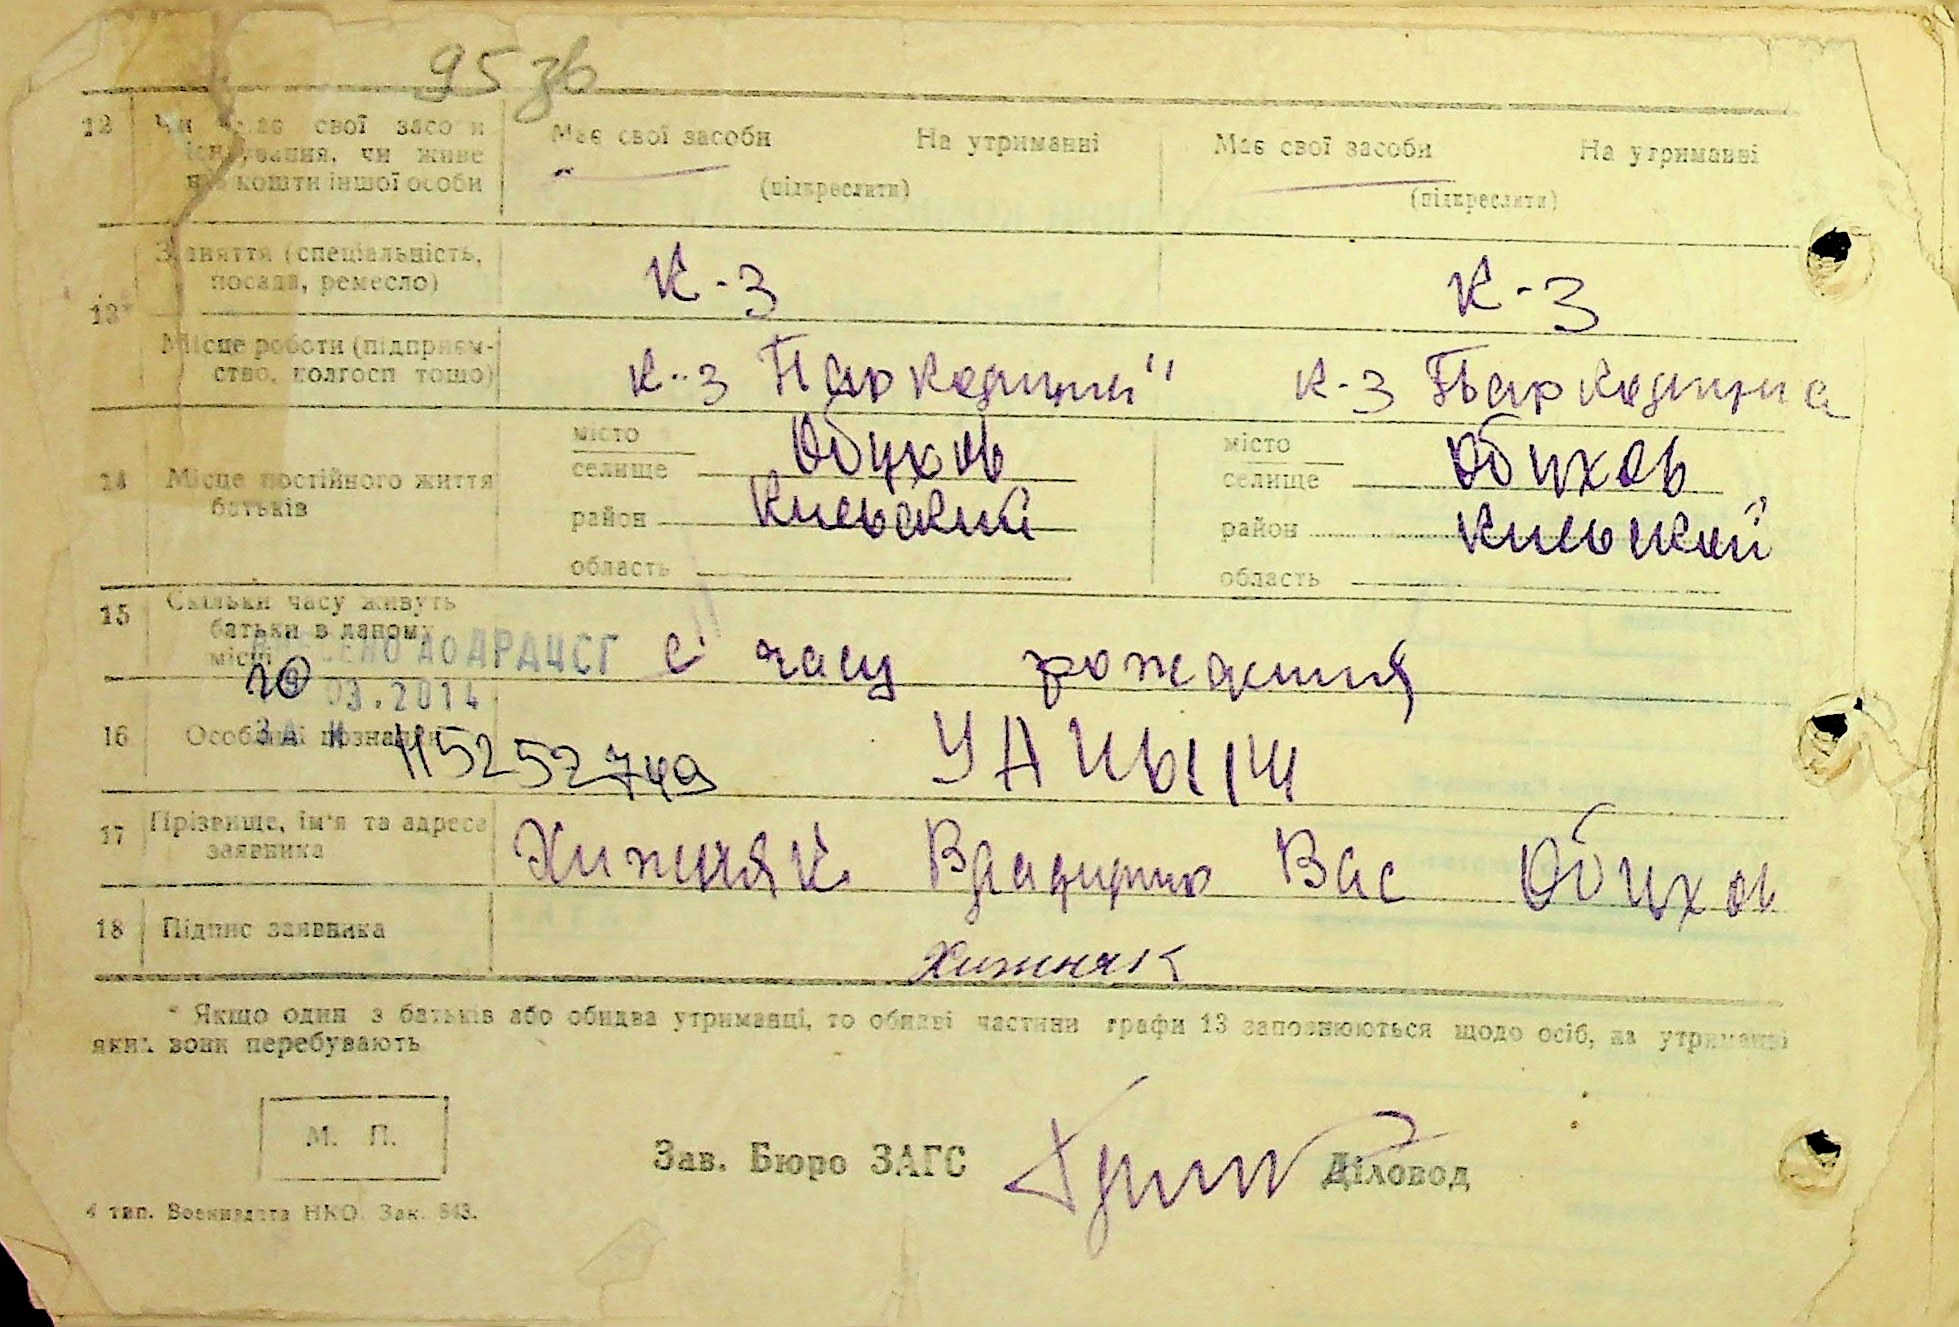 95 зв
12 Чи має свої засоби Має свої засоби На утриманні Має свої засоби На утриманні
існування, чи живе
на кошти іншої особи (підкреслити) (підкреслити)
Заняття (спеціальність, К-З К-З
посада, ремесло)
13*
Місце роботи (підприєм- к-з к-з
ство, колгосп тощо)
місто Обухов місто Обухов
14 Місце постійного життя селище селище
батьків район Киевский район Киевский
область область
15 Скільки часу живуть
батьки в даному
місці ВНЕСЕНО ДО ДРАЦСГ с часу рождения
20 03.2014
16 Особливі познаки
ЗА № 115252749
17 Прізвище, ім'я та адреса Хижняк Вас Обухов
заявника
18 Підпис заявника Хижняк
* Якщо один з батьків або обидва утриманці, то обидві частини графи 13 заповнюються щодо осіб, на утриманні
яких вони перебувають
М. П.
Зав. Бюро ЗАГС Діловод
4 тип. Воениздата НКО. Зак. 843.